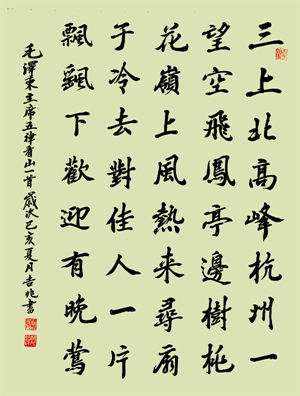 三上北高峰杭州一
望空飛鳳亭邊樹桃
花嶺上風熱来尋扇
子冷去對佳人一片
飄飄下歡迎有晚鶯
毛澤東主席五律看山一首歲次己亥夏月吉兆書